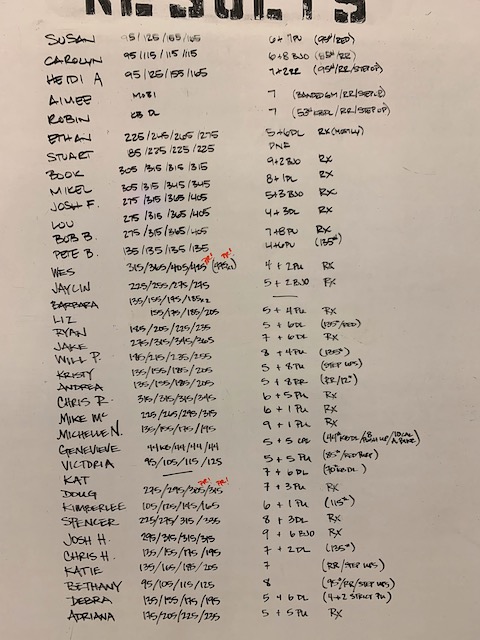 RESULTS
SUSAN 95/125/155/165 6+7PU (95#/RED)
CAROLYN 95/115/115/115 6+8 BJO (85#/RR)
HEIDI A 95/125/155/165 7+2RR (95#/RR/STEP UP)
AIMEE MOBI 7 (BANDED GM/RR/STEP UP)
ROBIN KB DL 7 (53# KBDL/RR/STEP UP)
ETHAN 225/245/265/275 5+6DL RX (MOSTLY)
STUART 185/225/225/225 DNF
BOOK 305/315/315/315 9+2 BJO RX
MIKEL 305/315/345/345 8+1DL RX
JOSH F. 275/315/365/405 5+3 BJO RX
LOU 275/315/365/405 4+3DL RX
BOB B. 275/315/365/405 7+8PU RX
PETE B. 135/135/135/135 4+6PU (135#)
WES 315/365/405/425 PR! PR! 4+2PU RX
JAYLIN 225/255/275/295 5+2 BJO RX
BARBARA 135/155/195/185x2 —
LIZ 155/175/185/205 5+4PU RX
RYAN 185/205/225/235 5+6DL (135#/RED)
JAKE 275/315/345/365 7+6DL RX
WILL P. 185/215/235/255 8+4PU (135#)
KRISTY 135/155/185/205 5+8PU (STEP UPS)
ANDREA 135/155/185/205 5+8RR (RR/12")
CHRIS R. 315/315/315/345 6+5PU RX
MIKE MC 225/265/295/315 6+1PU RX
MICHELLE N. 135/155/175/195 9+1PU RX
GENEVIEVE 44KG/44/44/44 5+5 (44# KBDL/
VICTRIA 95/105/115/125 5+5PU
KAT — 7+6DL (70# KBDL)
DOUG 275/295/305/315 PR! PR! 7+3PU RX
KIMBERLEE 105/125/145/165 6+1PU (115#)
SPENCER 225/275/315/335 8+3DL RX
JOSH H. 295/315/315/315 9+6 BJO RX
CHRIS H. 135/155/175/195 7+2DL (135#)
KATIE 135/165/185/205 7 (RR/STEP UPS)
BETHANY 95/105/115/125 8 (95#/RR/STEP UPS)
DEBRA 135/155/175/195 5+6DL (4+2 STRICT PU)
ADRIANA 175/205/225/235 5+5PU RX